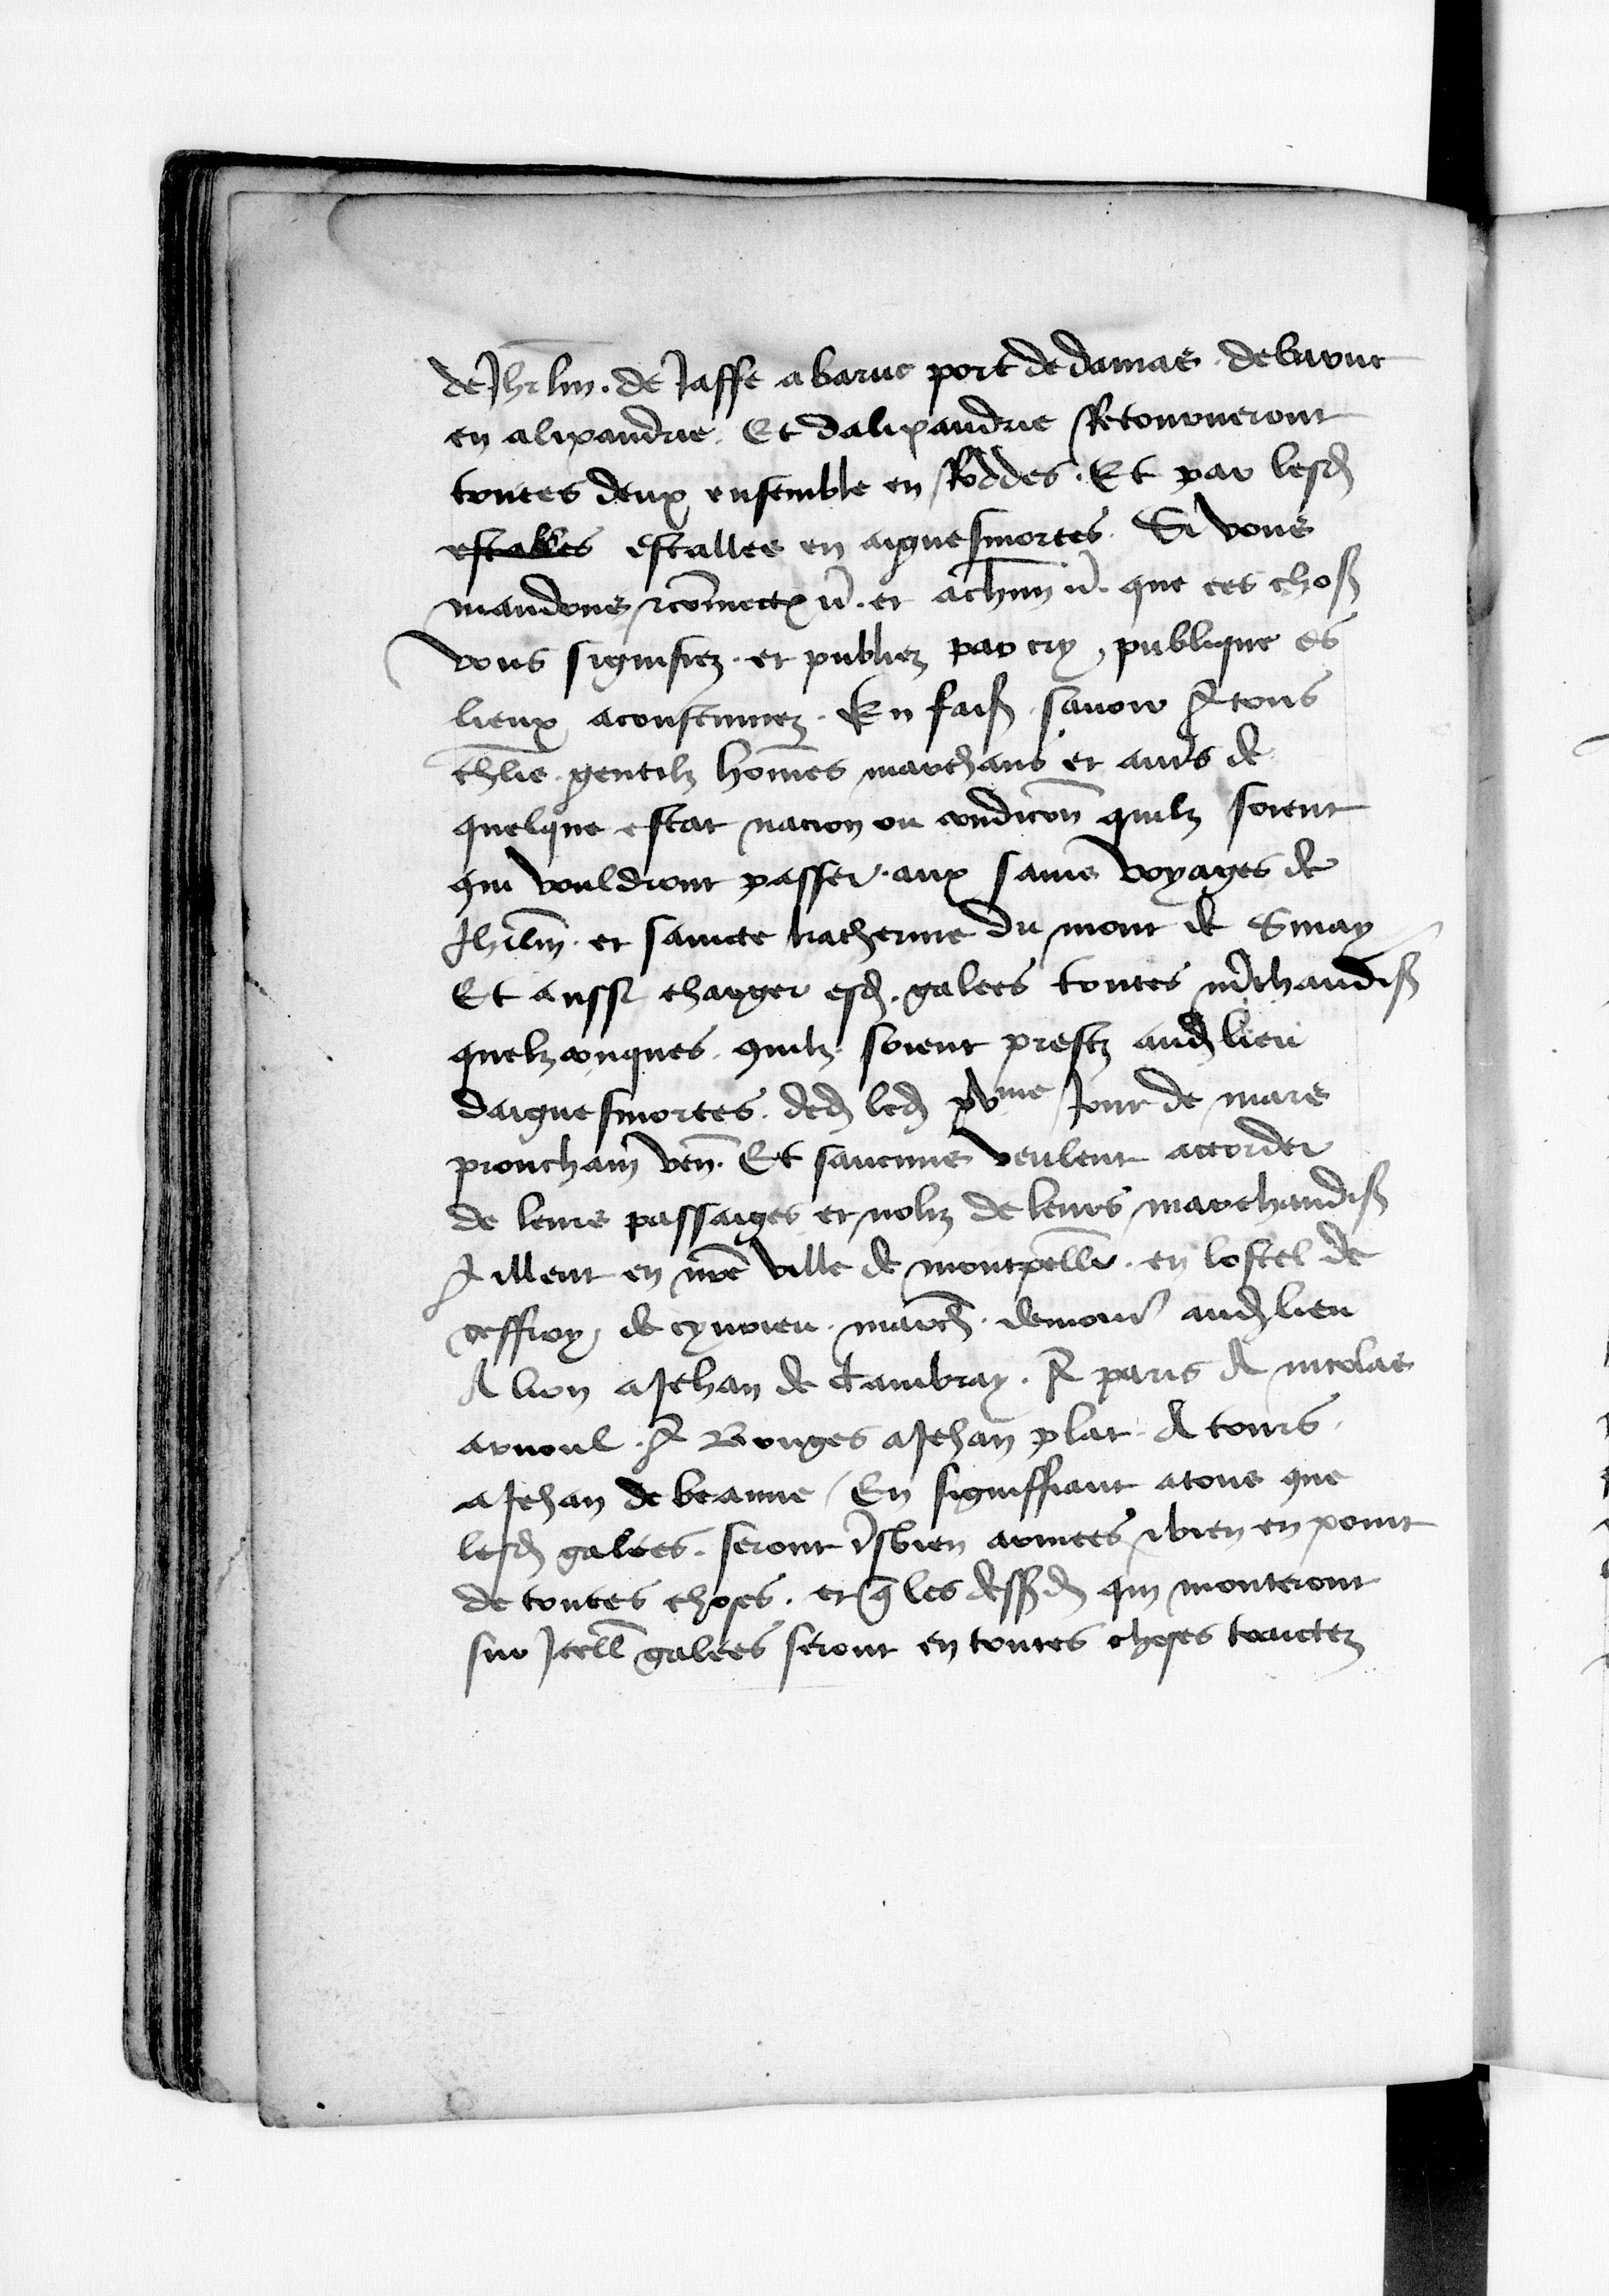 de Jhrlm . de Jaffe a baruc port de damas . de baruc
en alixandrie . Et dalixandrie Retourneront
toutes deux ensemble en Roddes . Et par lesd
estalles estallee en aiguesmortes . Si vous
mandons, comectx et achun que ces chos
vous signifiez . et publiez par cry, publique es
lieux acoustumez . En fais savoir A tous
chlrs . gentilz homes marchans et aurs de
quelque estat nacion ou condicon quilz soient
qui vouldront passer . aux sains voyages de
Jhrlm . et saincte katherine du mont de Sinay
Et aussi charger esd . galees toutes mrchandis
quelzconques . quilz soient prestz aud lieu
daiguesmortes . ded led xvme Jour de mars
prouchain ven . Et saucuns veulent accorder
de leurs passaiges et noliz de leurs marchandis
A illent en nre ville de montpellr . en lostel de
geffroy, de cyurieu . march . demour aud lieu
A lion a Jehan de Cambray . A paris A nicolas
arnoul . A Bourges a Jehan plat . A tours .
a Jehan de beaune / En signiffiant a tous que
lesd galees . seront bien armees, bien en point
de toutes choses . et q les dessd qui monteront
sur Jcell galees seront en toutes choses trauctez